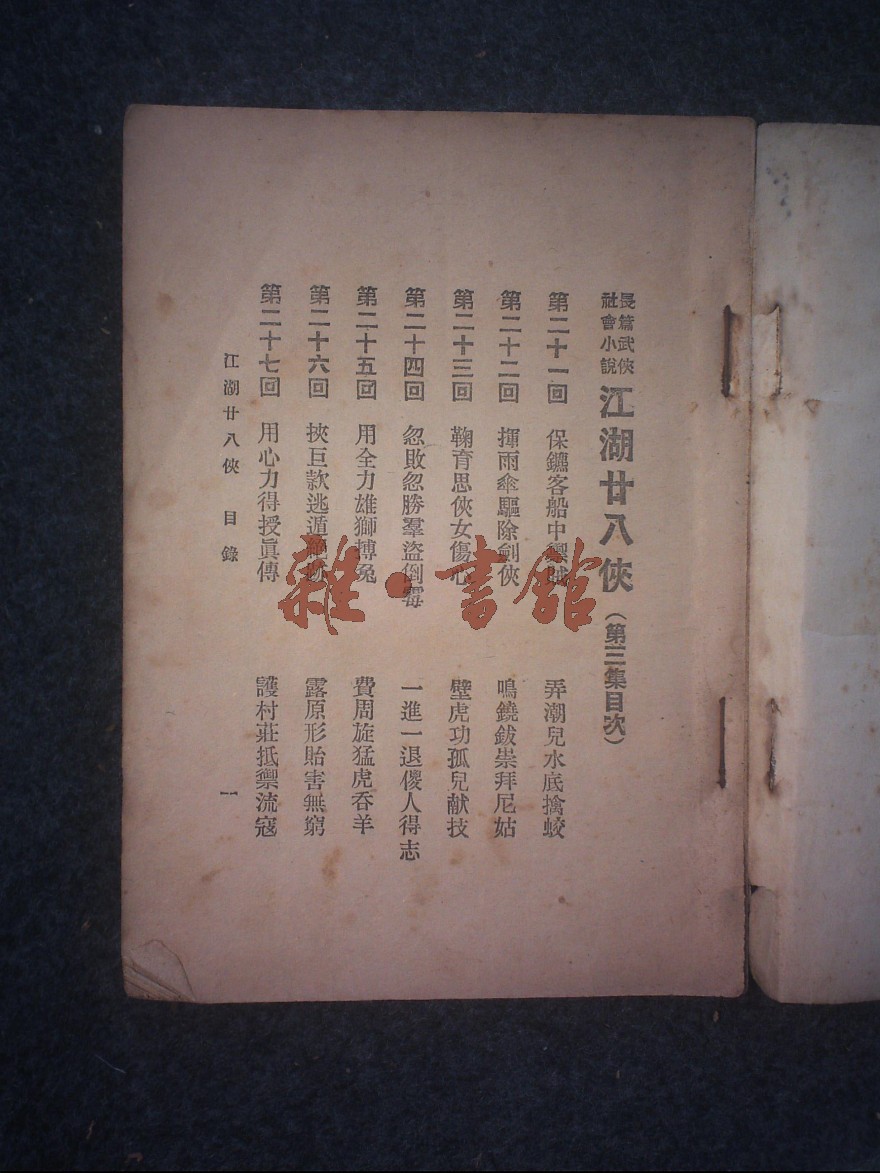 長篇武俠
社會小說
江湖廿八俠（第三集目次）
第二十一回　保鑣客船中禦賊　弄潮兒水底擒蛟
第二十二回　揮雨傘驅除劍俠　鳴鐃鈸崇拜尼姑
第二十三回　鞠育思俠女傷心　壁虎功孤兒献技
第二十四回　忽敗忽勝羣盜倒霉　一進一退傻人得志
第二十五回　用全力雄獅搏兔　費周旋猛虎吞羊
第二十六回　挾巨款逃遁　露原形貽害無窮
第二十七回　用心力得授眞傳　護村莊抵禦流寇
江湖廿八俠　目錄
一
雜·書館